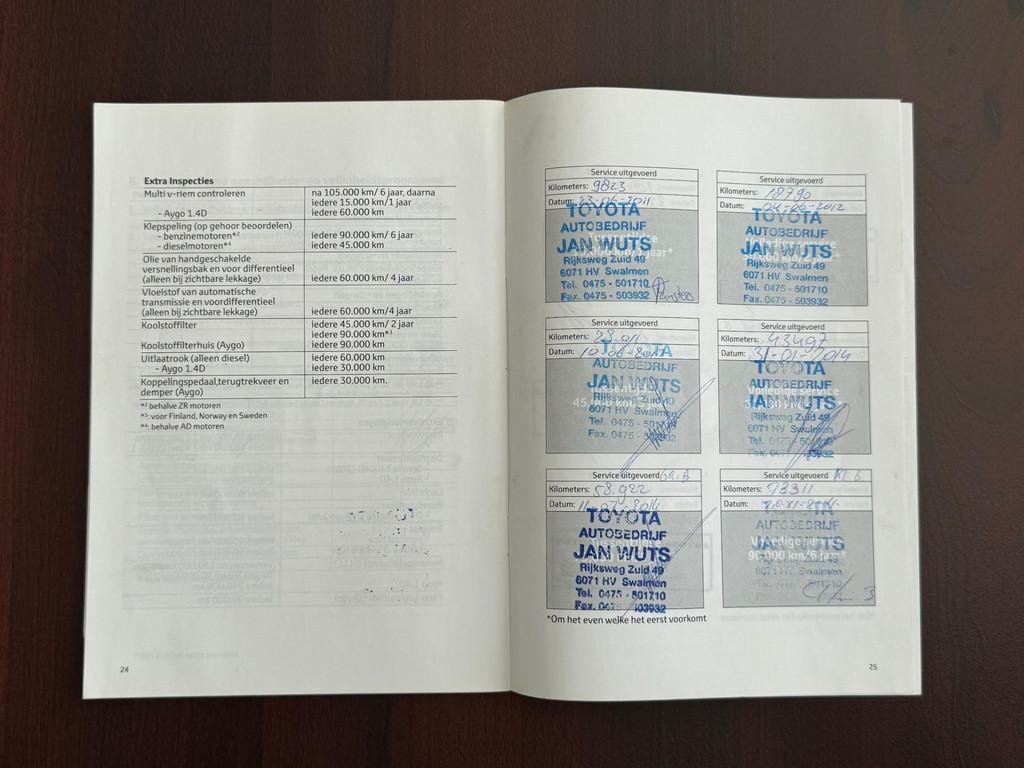 Extra Inspecties
Multi v-riem controleren na 105.000 km/ 6 jaar, daarna
iedere 15.000 km/1 jaar
- Aygo 1.4D iedere 60.000 km
Klepspeling (op gehoor beoordelen)
- benzinemotoren*² iedere 90.000 km/ 6 jaar
- dieselmotoren*⁴ iedere 45.000 km
Olie van handgeschakelde
versnellingsbak en voor differentieel
(alleen bij zichtbare lekkage) iedere 60.000 km/ 4 jaar
Vloeistof van automatische
transmissie en voordifferentieel
(alleen bij zichtbare lekkage) iedere 60.000 km/4 jaar
Koolstoffilter iedere 45.000 km/ 2 jaar
iedere 90.000 km*³
Koolstoffilterhuis (Aygo) iedere 90.000 km
Uitlaatrook (alleen diesel) iedere 60.000 km
- Aygo 1.4D iedere 30.000 km
Koppelingspedaal,terugtrekveer en iedere 30.000 km.
demper (Aygo)
*² behalve ZR motoren
*³: voor Finland, Norway en Sweden
*⁴: behalve AD motoren
24
Service uitgevoerd
Kilometers: 9823
Datum: 23-06-2011
TOYOTA
AUTOBEDRIJF
JAN WUTS
Rijksweg Zuid 49
6071 HV Swalmen
Tel. 0475 - 501710
Fax. 0475 - 503932
Service uitgevoerd
Kilometers: 18790
Datum: 04-06-2012
TOYOTA
AUTOBEDRIJF
JAN WUTS
Rijksweg Zuid 49
6071 HV Swalmen
Tel. 0475 - 501710
Fax. 0475 - 503932
Service uitgevoerd
Kilometers:
Datum: 10-06-
AUTOBEDRIJF
JAN WUTS
Rijksweg Zuid 49
6071 HV Swalmen
Tel. 0475 -
Fax. 0475 -
Service uitgevoerd
Kilometers: 43497
Datum: 31-01-2014
TOYOTA
AUTOBEDRIJF
Volledige service
JAN WUTS
Rijksweg Zuid 49
6071 HV Swalmen
Service uitgevoerd
Kilometers: 58.922
Datum: 11-07-2014
TOYOTA
AUTOBEDRIJF
JAN WUTS
Rijksweg Zuid 49
6071 HV Swalmen
Tel. 0475 - 501710
Fax.
Service uitgevoerd
Kilometers: 73311
Datum:
AUTOBEDRIJF
Volledige service
JAN WUTS
90.000 km/6 jaar*
Swalmen
*Om het even welke het eerst voorkomt
25